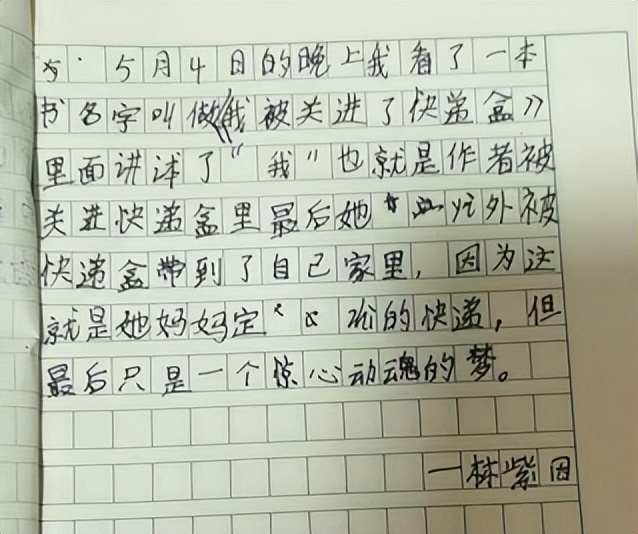 5月4日的晚上我看了一本
书名字叫做《我被关进了快递盒》
里面讲述了“我”也就是作者被
关进快递盒里最后她 外被
快递盒带到了自己家里，因为这
就是她妈妈定 的快递，但
最后只是一个惊心动魂的梦。
一林紫因